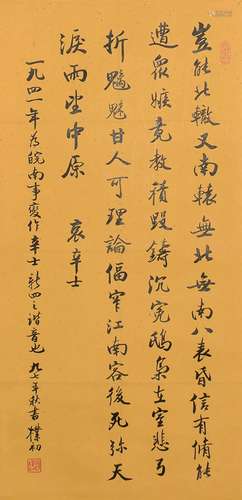 豈能北轍又南轅無北無南八表昏信有脩能
遭眾嫉竟教積毀鑄沉寃鴟梟在室悲弓
折魑魅甘人可理論偪窄江南客後死弥天
淚雨望中原 哀辛士
一九四一年為皖南事變作辛士新四之諧音也 九七年秋書 樸初